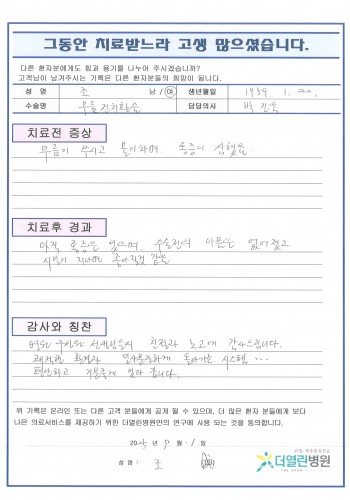 그동안 치료받느라 고생 많으셨습니다.
다른 환자분에게도 힘과 용기를 나누어 주시겠습니까?
고객님이 남겨주시는 기록은 다른 환자분들의 희망이 됩니다.
성 명 조 남 / 여 생년월일 1939. 1. 20.
수술명 무릎 담당의사 박
치료전 증상
무릎이 쑤시고 통증이 심했음
치료후 경과
아직 통증은 있으며, 수술전의 아픔은 없어졌고
시일이 지나면 좋아질것 같음
감사와 칭찬
선생님들의 친절과 노고에 감사드립니다.
쾌적한 환경과 일사불란하게 돌아가는 시스템...
편안하고 갑니다.
위 기록은 온라인 또는 다른 고객 분들에게 공개 될 수 있으며, 더 많은 환자 분들에게 보다
나은 의료서비스를 제공하기 위한 더열린병원만의 연구에 사용 되는 것을 동의합니다.
년 9 월 1 일
성 명 : 조 (인)
더열린병원